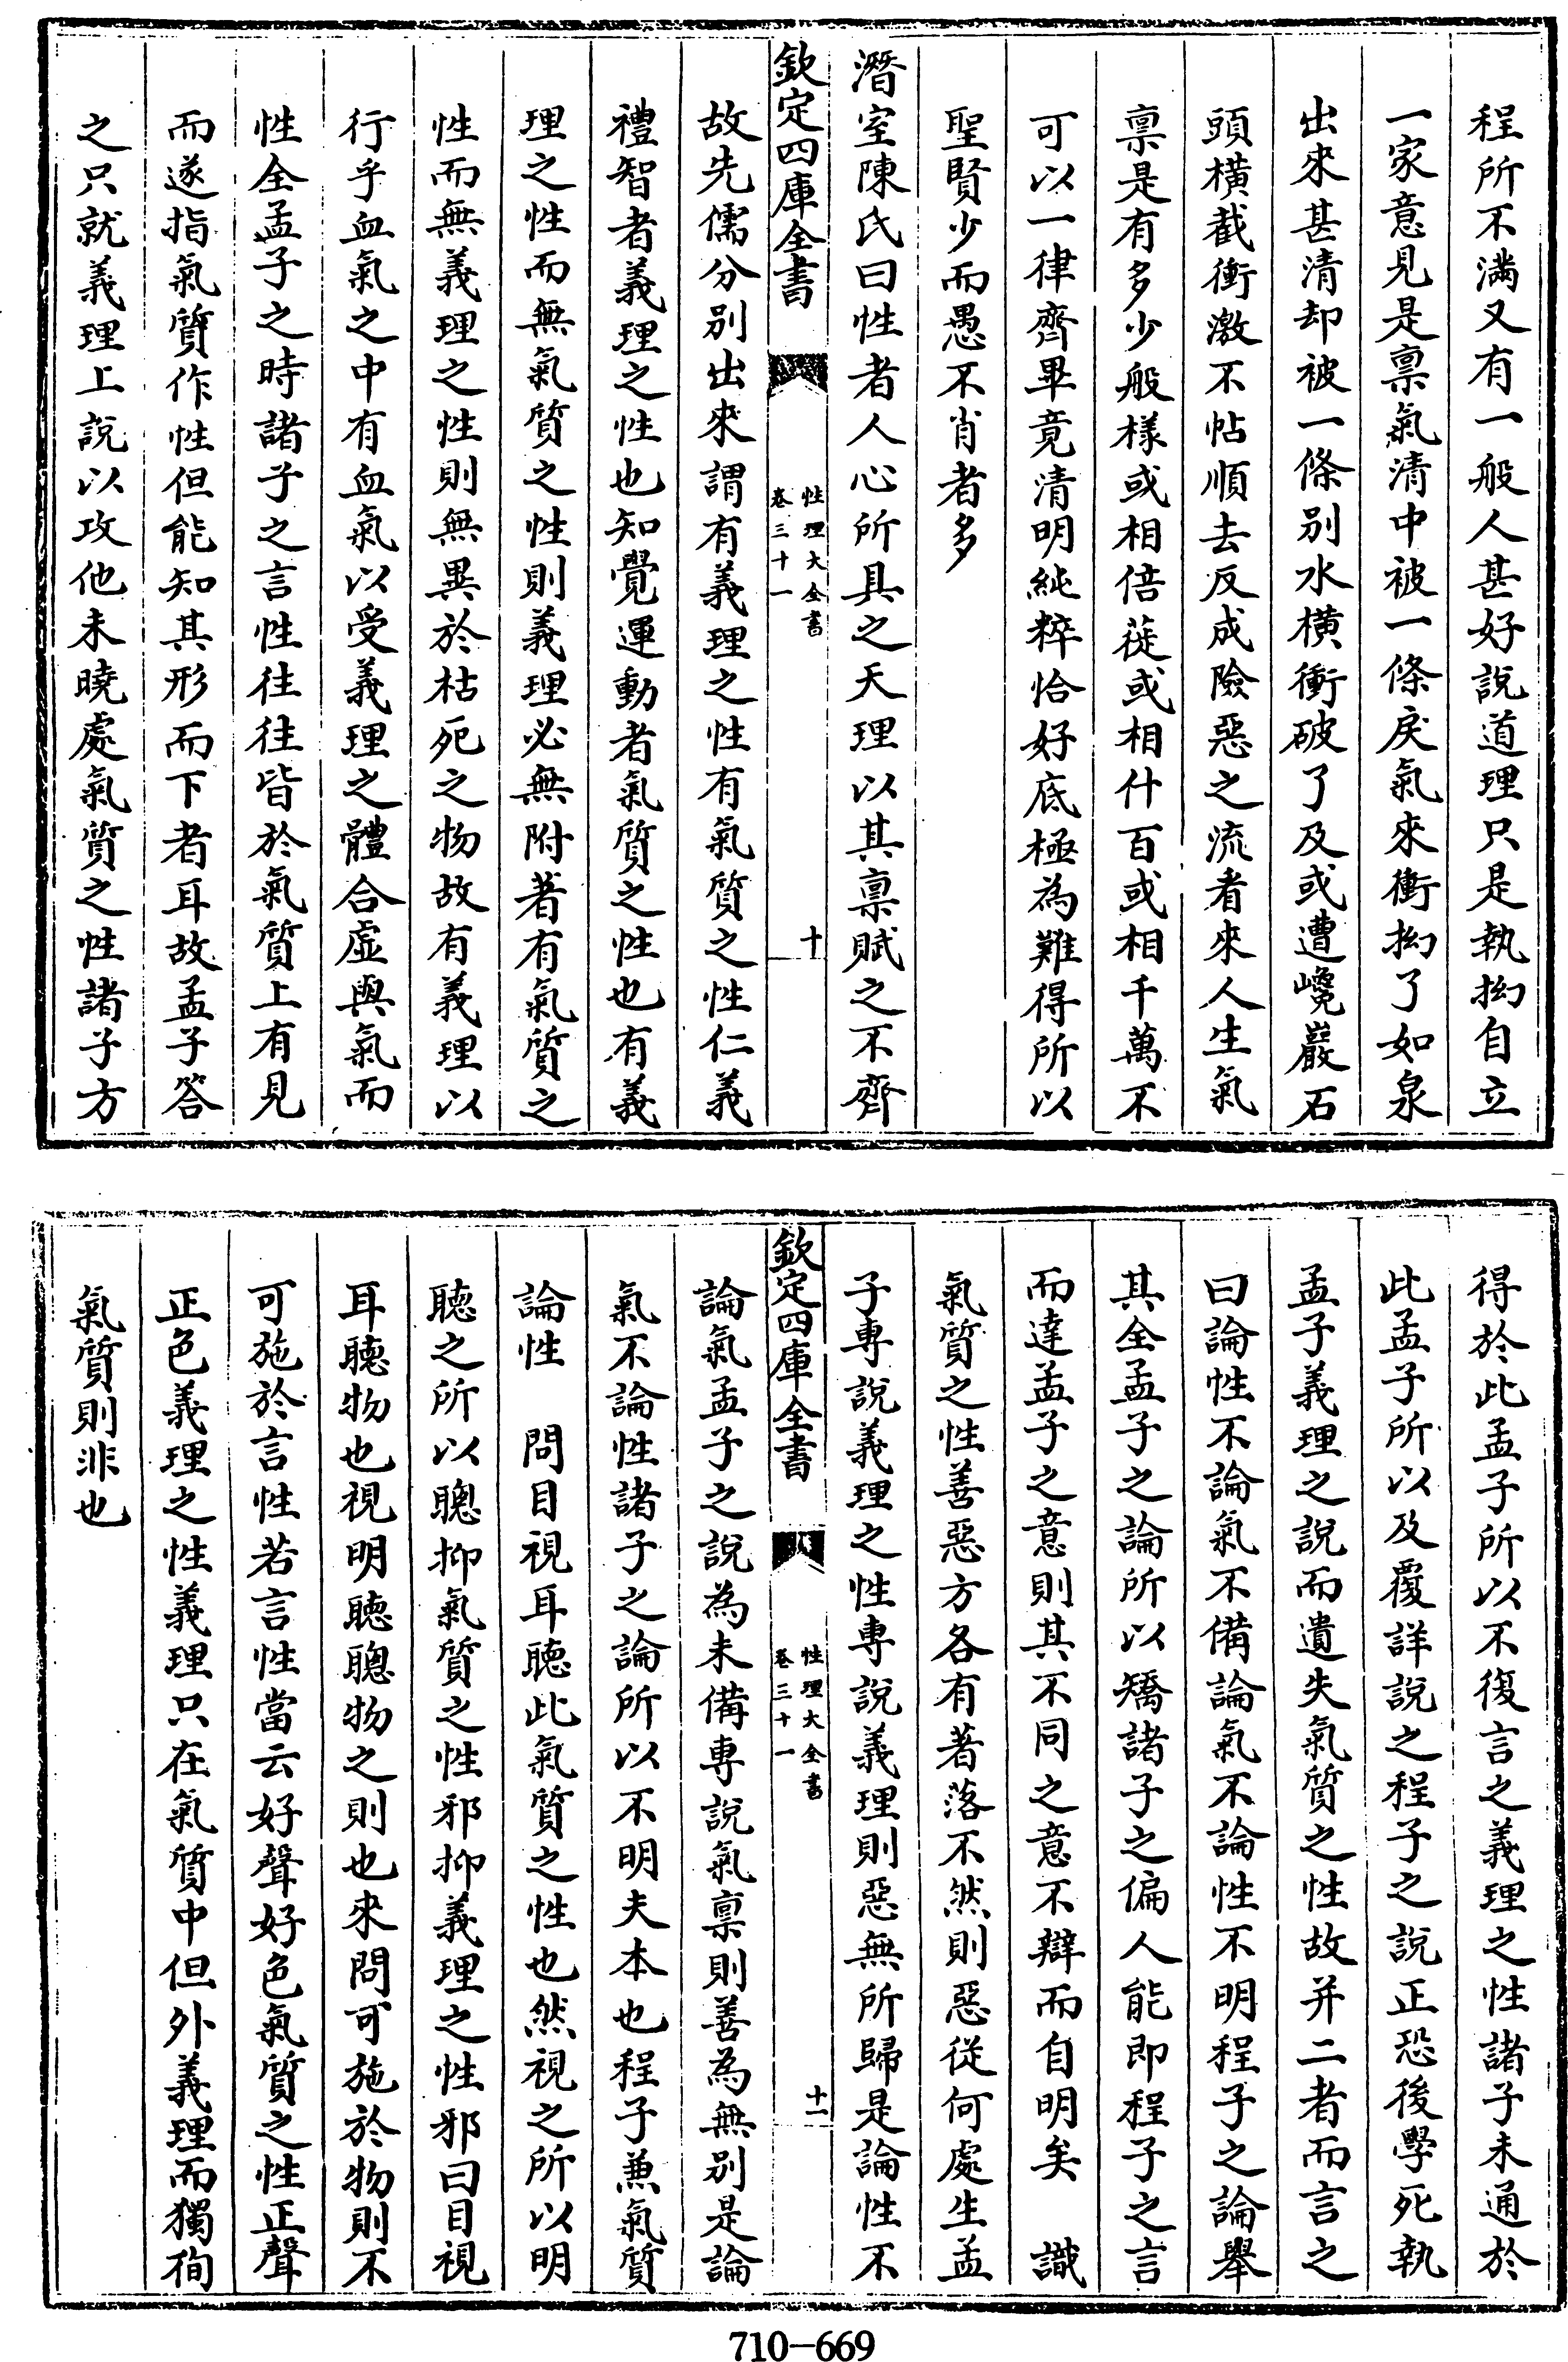 程所不滿又有一般人甚好說道理只是執拗自立
一家意見是禀氣清中被一條戾氣來衝拗了如泉
出來甚清却被一條別水橫衝破了及或遭巉巖石
頭橫截衝激不帖順去反成險惡之流者來人生氣
禀是有多少般様或相倍蓰或相什百或相千萬不
可以一律齊畢竟清明純粹恰好底極為難得所以
聖賢少而愚不肖者多
潛室陳氏曰性者人心所具之天理以其禀賦之不齊
欽定四庫全書
性理大全書
卷三十一
十
故先儒分別出來謂有義理之性有氣質之性仁義
禮智者義理之性也知覺運動者氣質之性也有義
理之性而無氣質之性則義理必無附著有氣質之
性而無義理之性則無異於枯死之物故有義理以
行乎血氣之中有血氣以受義理之體合虛與氣而
性全孟子之時諸子之言性往往皆於氣質上有見
而遂指氣質作性但能知其形而下者耳故孟子答
之只就義理上說以攻他未曉處氣質之性諸子方
得於此孟子所以不復言之義理之性諸子未通於
此孟子所以及覆詳說之程子之說正恐後學死執
孟子義理之說而遺失氣質之性故并二者而言之
曰論性不論氣不備論氣不論性不明程子之論舉
其全孟子之論所以矯諸子之偏人能即程子之言
而達孟子之意則其不同之意不辯而自明矣　識
氣質之性善惡方各有著落不然則惡從何處生孟
子專說義理之性專說義理則惡無所歸是論性不
欽定四庫全書
性理大全書
卷三十一
十一
論氣孟子之說為未備專說氣禀則善為無別是論
氣不論性諸子之論所以不明夫本也程子兼氣質
論性　問目視耳聽此氣質之性也然視之所以明
聽之所以聰抑氣質之性邪抑義理之性邪曰目視
耳聽物也視明聽聰物之則也來問可施於物則不
可施於言性若言性當云好聲好色氣質之性正聲
正色義理之性義理只在氣質中但外義理而獨徇
氣質則非也
710-669